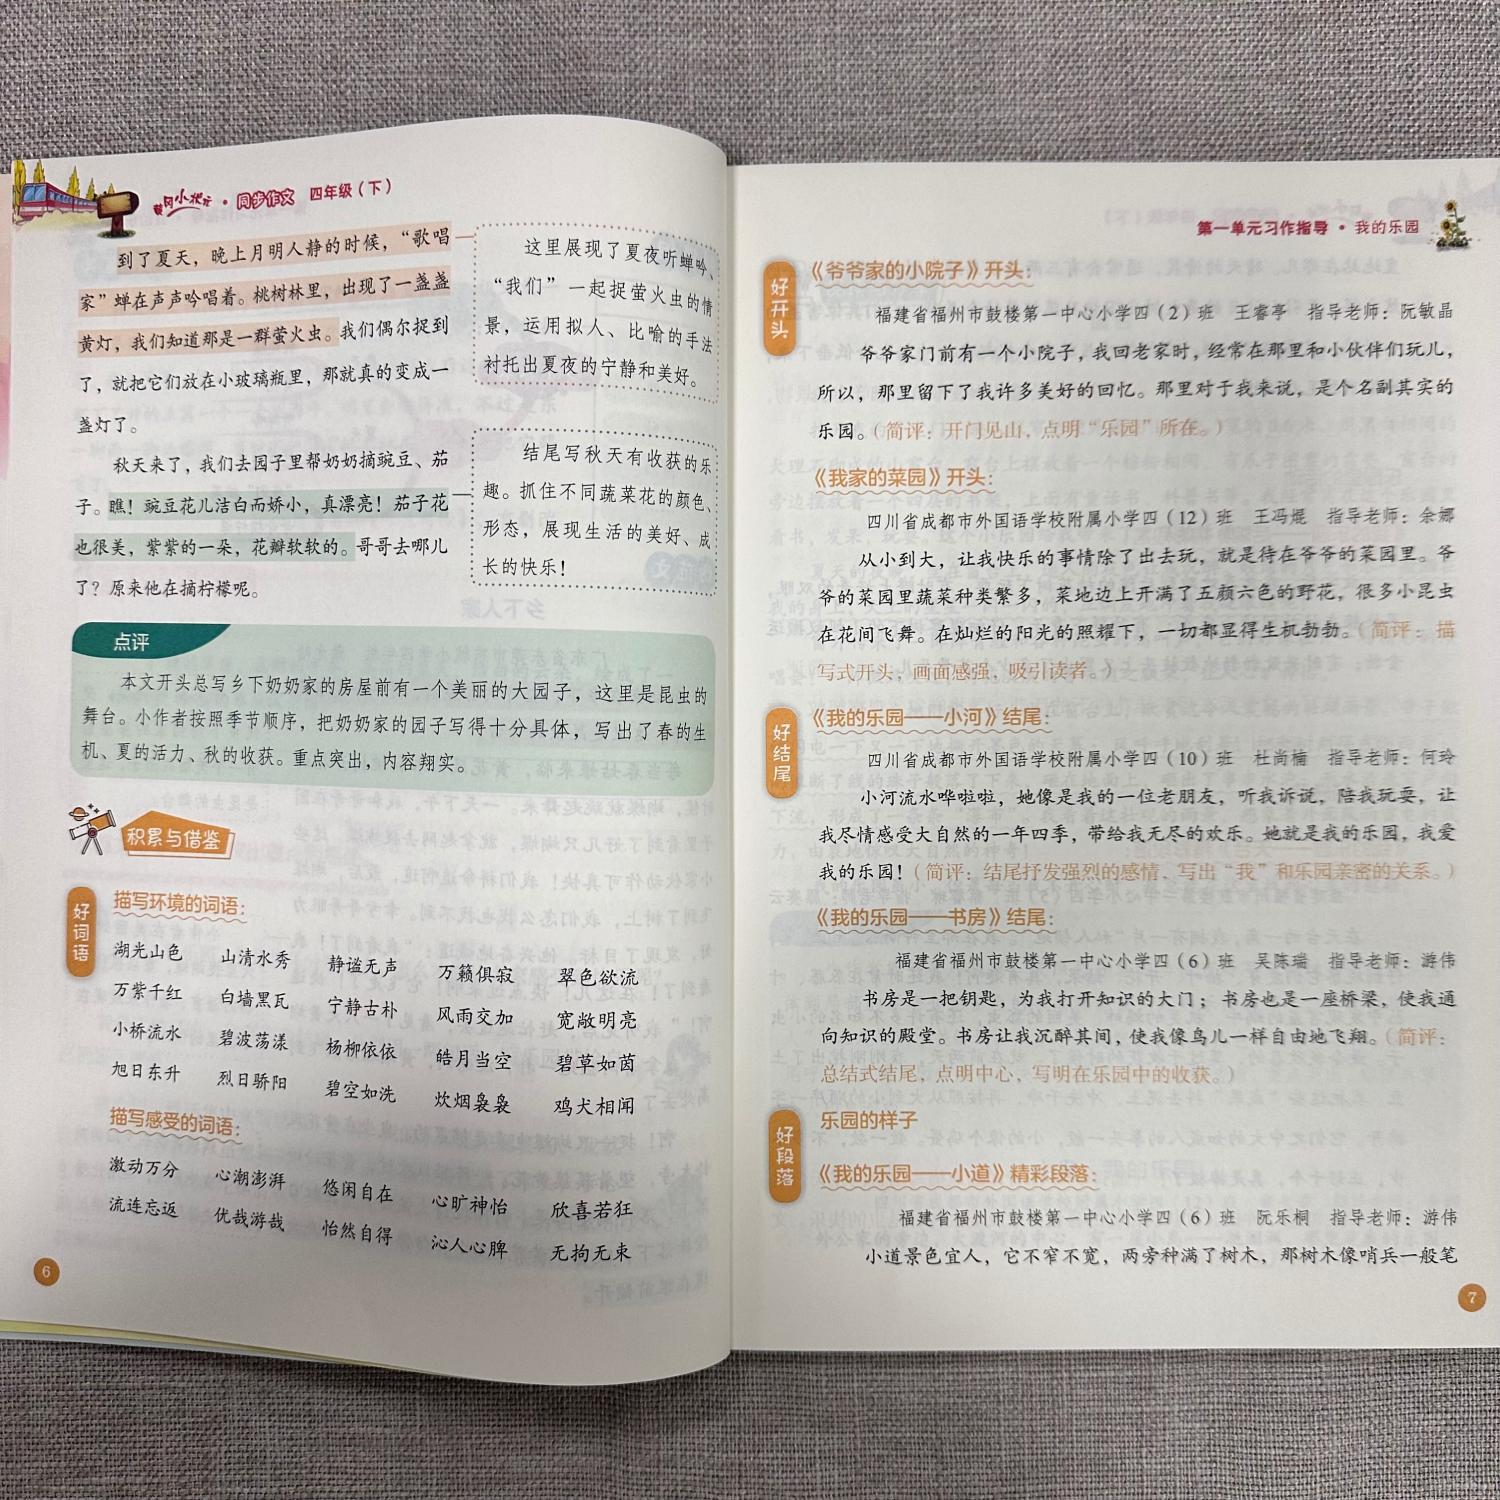 黄冈小状元·同步作文 四年级（下）
到了夏天，晚上月明人静的时候，“歌唱
家”蝉在声声吟唱着。桃树林里，出现了一盏盏
黄灯，我们知道那是一群萤火虫。我们偶尔捉到
了，就把它们放在小玻璃瓶里，那就真的变成一
盏灯了。
秋天来了，我们去园子里帮奶奶摘豌豆、茄
子。瞧！豌豆花儿洁白而娇小，真漂亮！茄子花
也很美，紫紫的一朵，花瓣软软的。哥哥去哪儿
了？原来他在摘柠檬呢。
这里展现了夏夜听蝉吟、
“我们”一起捉萤火虫的情
景，运用拟人、比喻的手法
衬托出夏夜的宁静和美好。
结尾写秋天有收获的乐
趣。抓住不同蔬菜花的颜色、
形态，展现生活的美好、成
长的快乐！
点评
本文开头总写乡下奶奶家的房屋前有一个美丽的大园子，这里是昆虫的
舞台。小作者按照季节顺序，把奶奶家的园子写得十分具体，写出了春的生
机、夏的活力、秋的收获。重点突出，内容翔实。
积累与借鉴
好词语
描写环境的词语：
湖光山色 山清水秀 静谧无声 万籁俱寂 翠色欲流
万紫千红 白墙黑瓦 宁静古朴 风雨交加 宽敞明亮
小桥流水 碧波荡漾 杨柳依依 皓月当空 碧草如茵
旭日东升 烈日骄阳 碧空如洗 炊烟袅袅 鸡犬相闻
描写感受的词语：
激动万分 心潮澎湃 悠闲自在 心旷神怡 欣喜若狂
流连忘返 优哉游哉 怡然自得 沁人心脾 无拘无束
6
第一单元习作指导·我的乐园
好开头
《爷爷家的小院子》开头：
福建省福州市鼓楼第一中心小学四（2）班 王睿亭 指导老师：阮敏晶
爷爷家门前有一个小院子，我回老家时，经常在那里和小伙伴们玩儿，
所以，那里留下了我许多美好的回忆。那里对于我来说，是个名副其实的
乐园。（简评：开门见山，点明“乐园”所在。）
《我家的菜园》开头：
四川省成都市外国语学校附属小学四（12）班 王冯焜 指导老师：余娜
从小到大，让我快乐的事情除了出去玩，就是待在爷爷的菜园里。爷
爷的菜园里蔬菜种类繁多，菜地边上开满了五颜六色的野花，很多小昆虫
在花间飞舞。在灿烂的阳光的照耀下，一切都显得生机勃勃。（简评：描
写式开头，画面感强，吸引读者。）
好结尾
《我的乐园——小河》结尾：
四川省成都市外国语学校附属小学四（10）班 杜尚楠 指导老师：何玲
小河流水哗啦啦，她像是我的一位老朋友，听我诉说，陪我玩耍，让
我尽情感受大自然的一年四季，带给我无尽的欢乐。她就是我的乐园，我爱
我的乐园！（简评：结尾抒发强烈的感情，写出“我”和乐园亲密的关系。）
《我的乐园——书房》结尾：
福建省福州市鼓楼第一中心小学四（6）班 吴陈瑞 指导老师：游伟
书房是一把钥匙，为我打开知识的大门；书房也是一座桥梁，使我通
向知识的殿堂。书房让我沉醉其间，使我像鸟儿一样自由地飞翔。（简评：
总结式结尾，点明中心，写明在乐园中的收获。）
好段落
乐园的样子
《我的乐园——小道》精彩段落：
福建省福州市鼓楼第一中心小学四（6）班 阮乐桐 指导老师：游伟
小道景色宜人，它不窄不宽，两旁种满了树木，那树木像哨兵一般笔
7